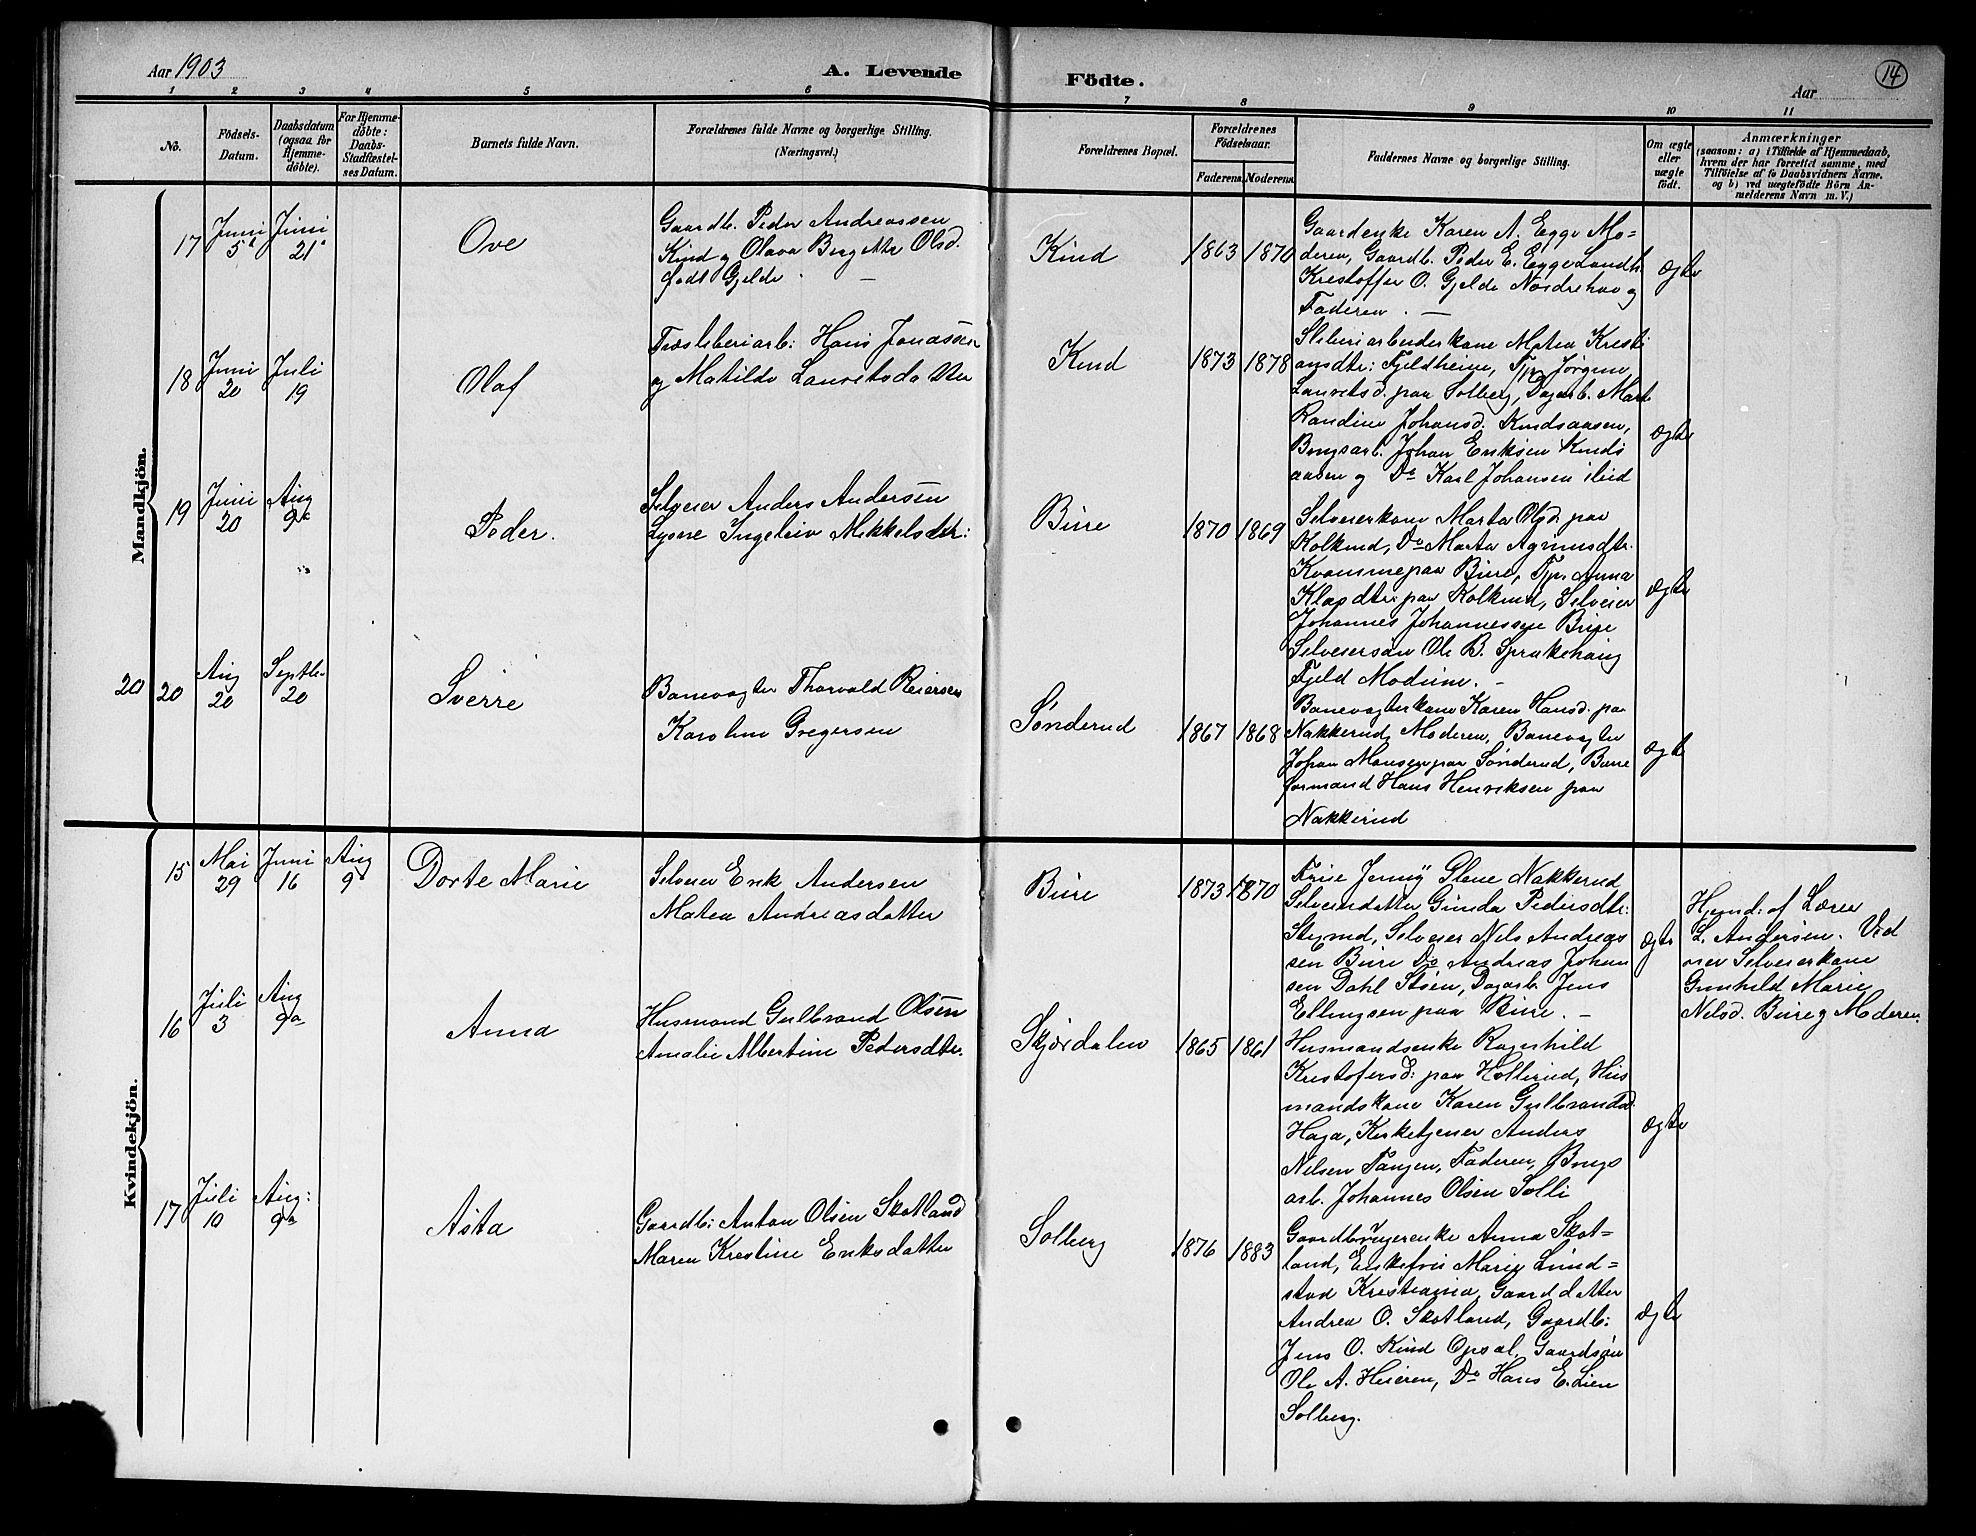 Aar 1903
A. Levende
Födte.
Aar
14
1 2 3 4 5 6 7 8 9 10 11
No.
Födsels-
Datum.
Daabsdatum
(ogsaa for
Hjemme-
döbte).
For Hjemme-
döbte:
Daabs-
Stadfæstel-
ses Datum.
Barnets fulde Navn.
Forældrenes fulde Navne og borgerlige Stilling.
(Næringsvei.)
Forældrenes Bopæl.
Forældrenes
Födselsaar.
Faderens. Moderens.
Faddernes Navne og borgerlige Stilling.
Om ægte
eller
uægte
födt.
Anmærkninger
(saasom: a) i Tilfælde af Hjemmedaab,
hvem der har forrettet samme, med
Tilföielse af to Daabsvidners Navne.
og b) ved uægtefödte Börn An-
melderens Navn m. V.)
Mandkjön.
17
Juni
5
Juni
21
Ove
Gaardb. Peder Andreassen
Kind og Olava Bergitte Olsd.
født Gjelde
Kind
1863 1870
Gaardenke Karen A. Egge Mo-
deren, Gaardb. Peder E. Egge Landh.
Kristoffer O. Gjelde Norderhov og
Faderen.
Ægte
18
Juni
20
Juli
19
Olaf
Træsliberiarb: Hans Jonassen
og Matilde Lauritsdatter
Kind
1873 1878
Sliberiarbeiderkone Matea Kristi
ansdtr: Fjeldheim, Tjp. Jørgine
Lauritsd. paa Solberg, Dagarb. Mart
Randine Johansd. Kindsaasen,
Brugsarb. Johan Eriksen Kinds
aasen og Do Karl Johansen ibid
Ægte
19
Juni
20
Aug
9de
Peder.
Selveier Anders Andersen
Lysne Ingeleiv Mikkelsdtr:
Bure
1870 1869
Selveierkone Marta Olsd: paa
Kolkind, Do Marta Agmundtr.
Kvamme paa Bure, Tjp. Anna
Klasdtr: paa Kolkind, Selveier
Johannes Johannessen Bure
Selveiersøn Ole B. Sprakehaug
Fjeld Modum.
Ægte
20 20
Aug
20
Septbr
20
Sverre
Banevogter Thorvald Reiersen
Karoline Gregersen
Sønderud
1867 1868
Banevogterkone Karen Hansd. paa
Nakkerud, Moderen, Banevogter
Johan Monsen paa Sønderud, Bane
formand Hans Henriksen paa
Nakkerud
Ægte
Kvindekjön.
15
Mai
29
Juni
16
Aug
9
Dorte Marie
Selveier Erik Andersen
Matea Andreasdatter
Bure
1873 1870
Frue Jenny Plene Nakkerud
Selveierdatter Gunda Pedersdtr:
Strand, Selveier Nils Andreas
sen Bure Do Andreas Johan
sen Dahl Støen, Dagarb. Jens
Ellingsen paa Bure.
Ægte
Hjemd: af Lærer
L. Andersen. Vid
ner Selveierkone
Gunhild Marie
Nelsd. Bure og Moderen
16
Juli
3
Aug
9de
Anna
Husmand Gulbrand Olsen
Amalie Albertine Pedersdtr.
Skjærdalen
1865 1861
Husmandsenke Ragnhild
Kristofersd: paa Hollerud, Hus
mandskone Karen Gulbrandsd.
Haga, Kirketjener Anders
Nelsen Tangen, Faderen, Brugs
arb. Johannes Olsen Solli
Ægte
17
Juli
10
Aug:
9de
Asta
Gaardb: Anton Olsen Skotland
Maren Kristine Eriksdatter
Solberg
1876 1883
Gaardbrugerenke Anna Skot-
land, Enkefru Marie Lund-
stad Kristiania, Gaarddatter
Andrea O. Skotland, Gaardb:
Jens O. Kind Opsal, Gaardsøn
Ole A. Heieren, Do Hans E. Lien
Solberg.
Ægte